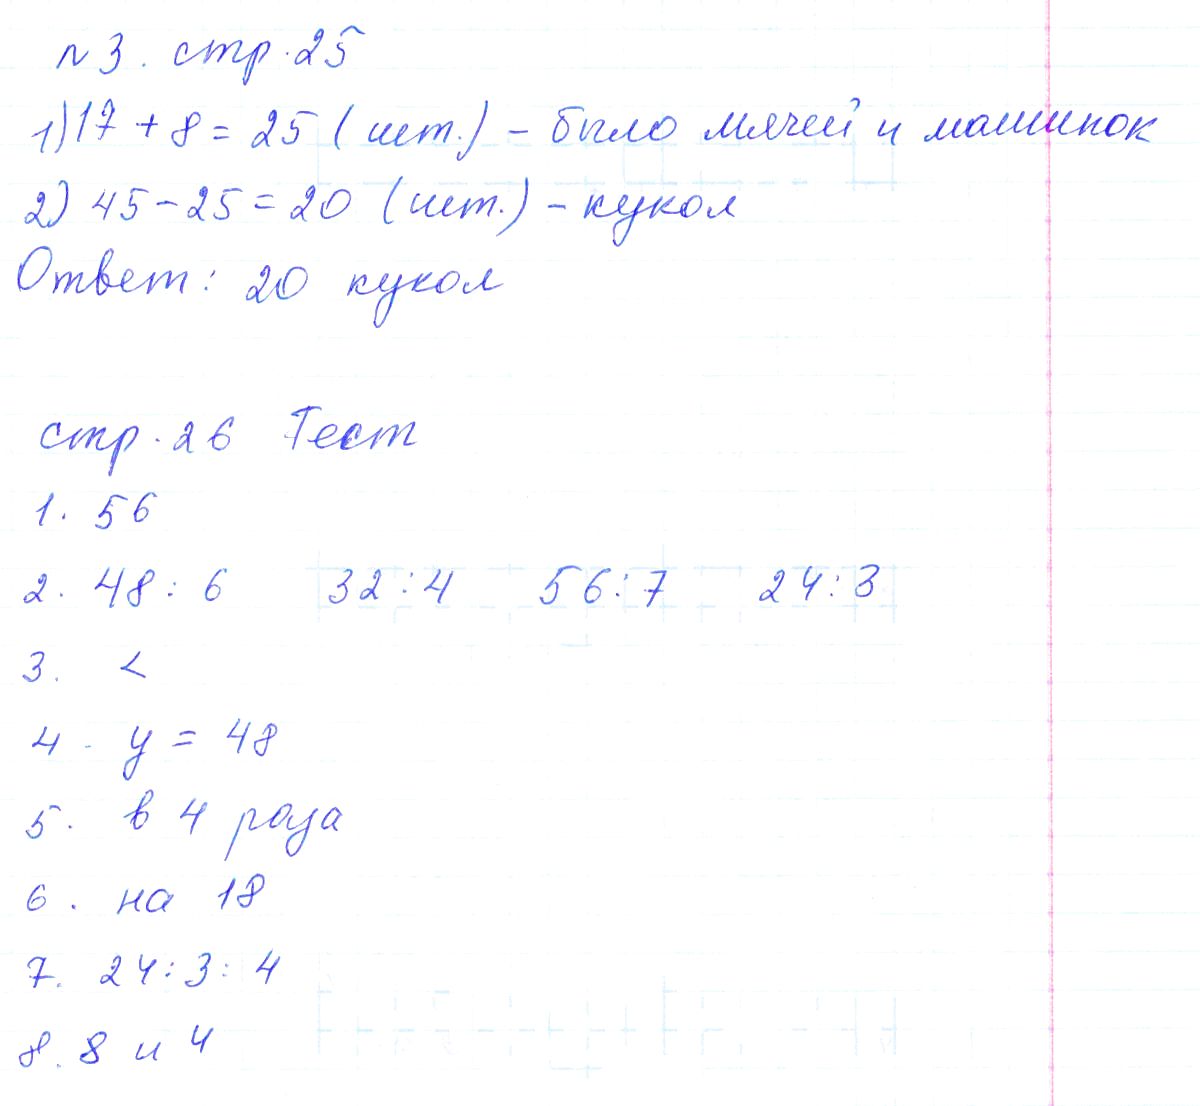 № 3. стр. 25
1) 17 + 8 = 25 (шт.) – было мячей и машинок
2) 45 – 25 = 20 (шт.) – кукол
Ответ: 20 кукол
стр. 26 Тест
1. 56
2. 48 : 6 32 : 4 56 : 7 24 : 3
3. <
4. у = 48
5. в 4 раза
6. на 18
7. 24 : 3 : 4
8. 8 и 4